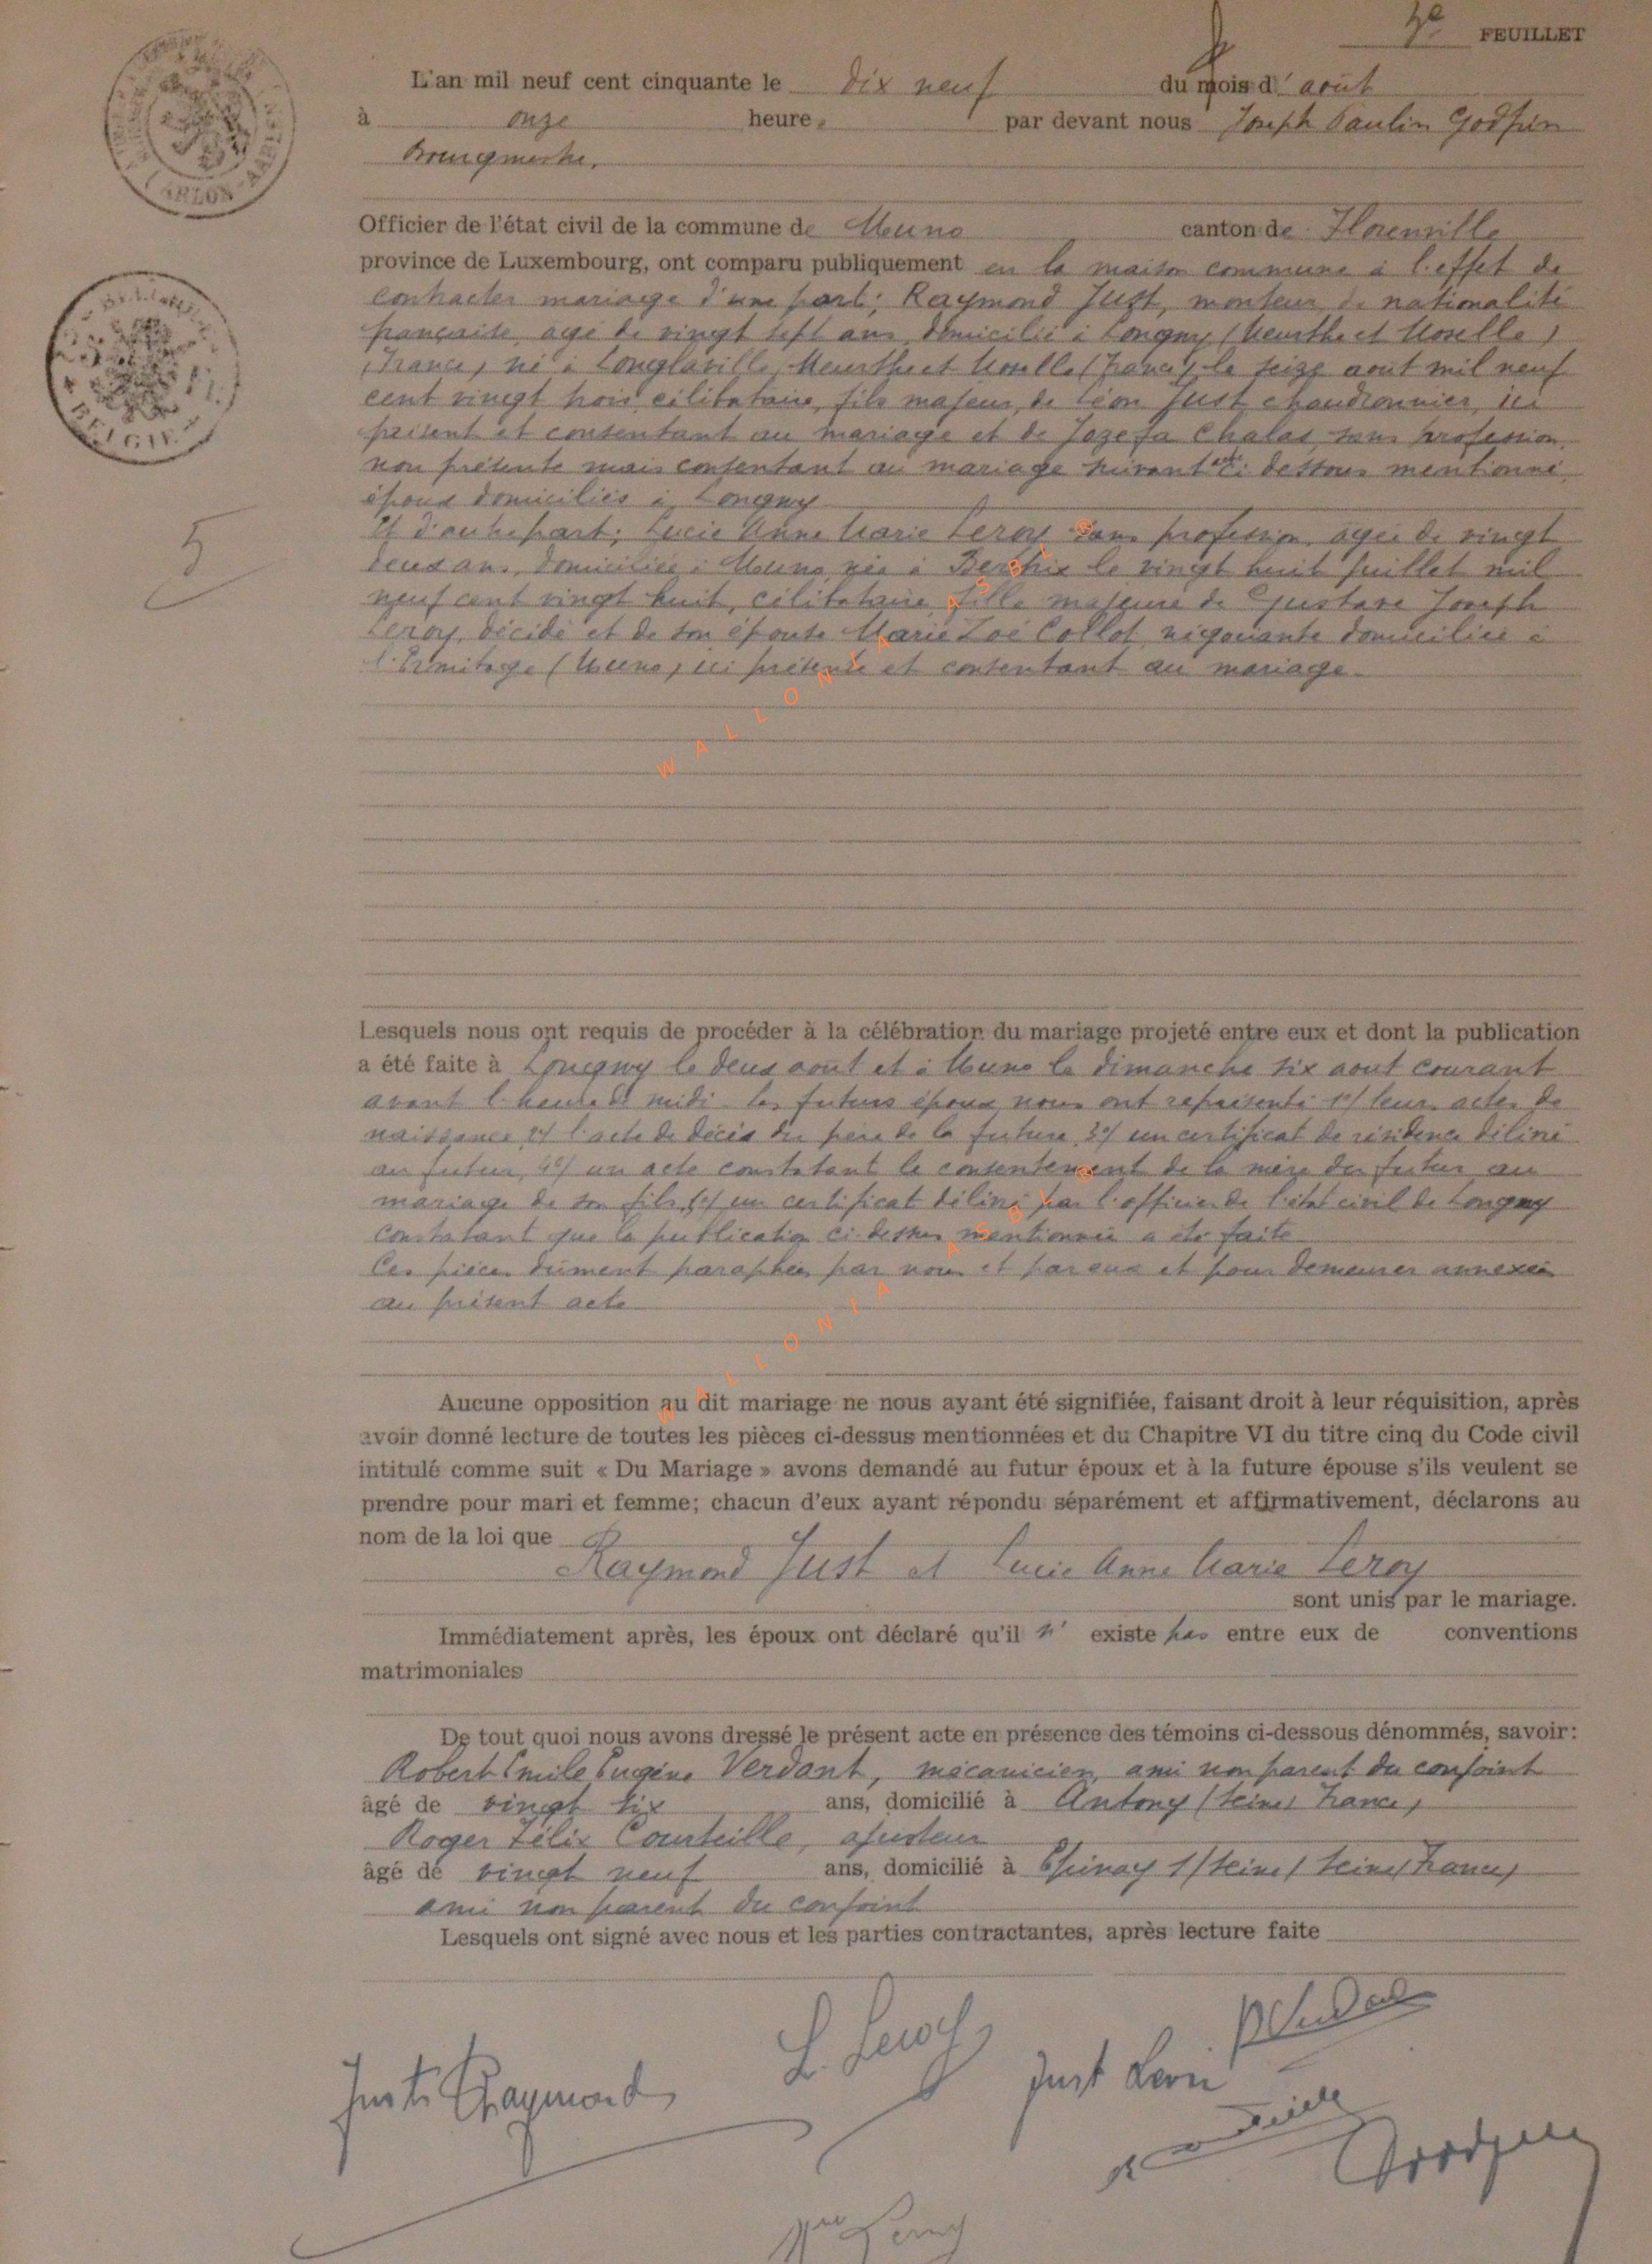 7e FEUILLET
L'an mil neuf cent cinquante le dix neuf du mois d' août
à onze heures par devant nous Joseph Paulin Godfrin
Bourgmestre,
ARLON-AARLEN
Officier de l'état civil de la commune de Muno canton de Florenville
province de Luxembourg, ont comparu publiquement en la maison commune à l'effet de
BELGIE
contracter mariage d'une part; Raymond Just, monteur, de nationalité
française agé de vingt sept ans domicilié à Longwy (Meurthe et Moselle)
(France) né à Longlaville, Meurthe et Moselle (France) le seize aout mil neuf
cent vingt trois, célibataire, fils majeur, de Léon Just chaudronnier, ici
présent et consentant au mariage et de Jozefa Chalas, sans profession,
non présente mais consentant au mariage suivant acte ci dessous mentionné,
époux domiciliés à Longwy
5
Et d'autre part; Lucie Anne Marie Leroy sans profession, agée de vingt
deux ans, domiciliée à Muno, née à Bertrix le vingt huit juillet mil
neuf cent vingt huit, célibataire, fille majeure de Gustave Joseph
Leroy, décédé et de son épouse Marie Zoé Collot, négociante domiciliée à
l'Ermitage (Muno) ici présente et consentant au mariage.
WALLONIA ASBL ®
Lesquels nous ont requis de procéder à la célébration du mariage projeté entre eux et dont la publication
a été faite à Longwy le deux aout et à Muno le dimanche six aout courant
avant l'heure de midi. les futurs époux nous ont représenté 1°/ leurs actes de
naissance 2°/ l'acte de décès du père de la future, 3°/ un certificat de résidence délivré
au futur, 4°/ un acte constatant le consentement de la mère du futur au
mariage de son fils, 5°/ un certificat délivré par l'officier de l'état civil de Longwy
constatant que la publication ci-dessus mentionnée a été faite
Ces pièces dûment paraphées par nous et par eux et pour demeurer annexées
au présent acte
WALLONIA ASBL ®
Aucune opposition au dit mariage ne nous ayant été signifiée, faisant droit à leur réquisition, après
avoir donné lecture de toutes les pièces ci-dessus mentionnées et du Chapitre VI du titre cinq du Code civil
intitulé comme suit « Du Mariage » avons demandé au futur époux et à la future épouse s'ils veulent se
prendre pour mari et femme; chacun d'eux ayant répondu séparément et affirmativement, déclarons au
nom de la loi que
Raymond Just et Lucie Anne Marie Leroy
sont unis par le mariage.
Immédiatement après, les époux ont déclaré qu'il n' existe pas entre eux de conventions
matrimoniales
De tout quoi nous avons dressé le présent acte en présence des témoins ci-dessous dénommés, savoir:
Robert Emile Eugène Verdant, mécanicien, ami non parent du conjoint
âgé de vingt six ans, domicilié à Antony (Seine) France)
Roger Félix Courteille, ajusteur
âgé de vingt neuf ans, domicilié à Epinay s/Seine (Seine) France)
ami non parent du conjoint
Lesquels ont signé avec nous et les parties contractantes, après lecture faite
L. Leroy
Just Raymond
Just Léon
Mme Leroy